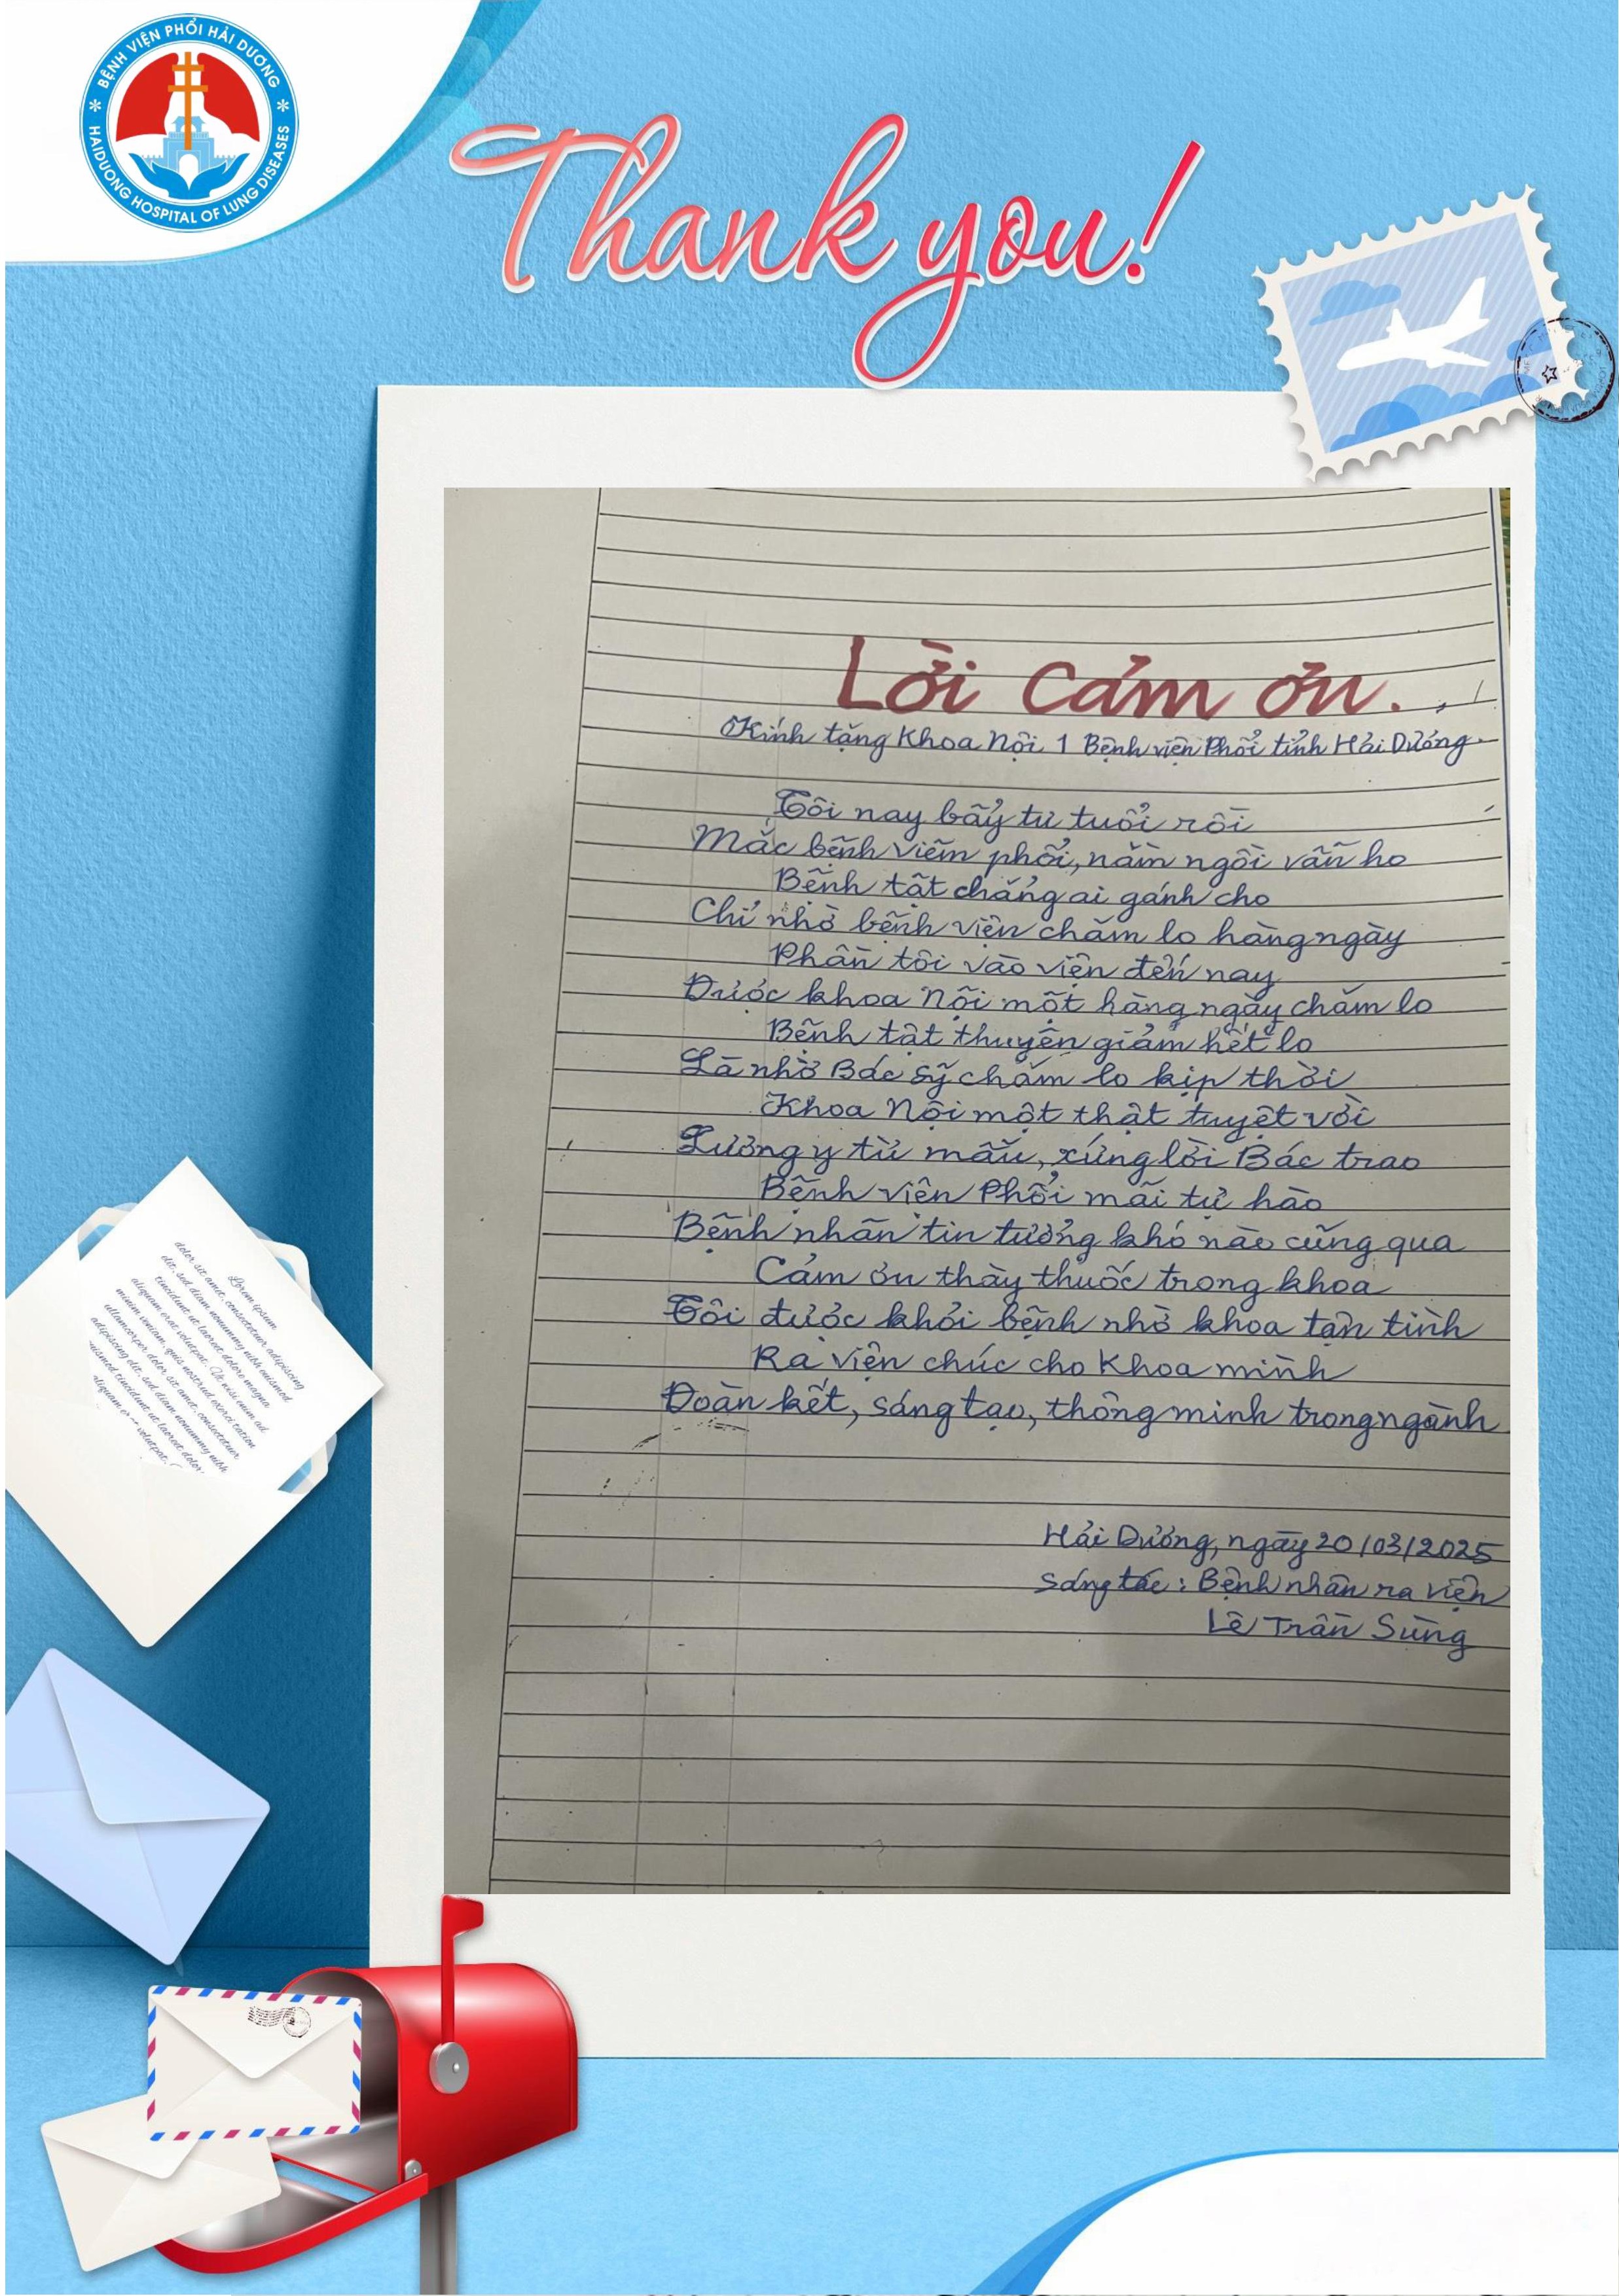 BỆNH VIỆN PHỔI HẢI DƯƠNG
HAIDUONG HOSPITAL OF LUNG DISEASES
Thank you!
Lời cảm ơn.
Kính tặng Khoa Nội 1 Bệnh viện Phổi tỉnh Hải Dương
Tôi nay bẩy tư tuổi rồi
Mắc bệnh viêm phổi, nằm ngồi vẫn ho
Bệnh tật chẳng ai gánh cho
Chỉ nhờ bệnh viện chăm lo hàng ngày
Phần tôi vào viện đến nay
Được khoa Nội một hàng ngày chăm lo
Bệnh tật thuyên giảm hết lo
Là nhờ Bác sỹ chăm lo kịp thời
Khoa Nội một thật tuyệt vời
Lương y từ mẫu, xứng lời Bác trao
Bệnh viện Phổi mãi tự hào
Bệnh nhân tin tưởng khó nào cũng qua
Cảm ơn thày thuốc trong khoa
Tôi được khỏi bệnh nhờ khoa tận tình
Ra viện chúc cho Khoa mình
Đoàn kết, sáng tạo, thông minh trong ngành
Hải Dương, ngày 20/03/2025
Sáng tác: Bệnh nhân ra viện
Lê Trần Sùng
Lorem ipsum
dolor sit amet, consectetuer adipiscing
elit, sed diam nonummy nibh euismod
tincidunt ut laoreet dolore magna
aliquam erat volutpat. Ut wisi enim ad
minim veniam, quis nostrud exerci tation
ullamcorper dolor sit amet, consectetuer
adipiscing elit, sed diam nonummy nibh
euismod tincidunt ut laoreet dolor
aliquam er volutpat.